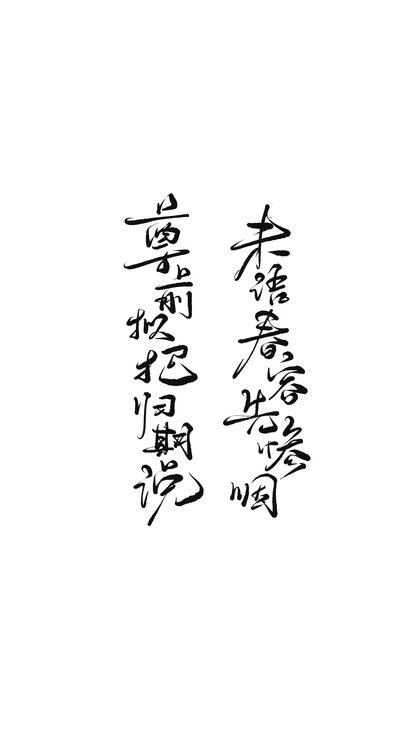 尊前拟把归期说
未语春容先惨咽